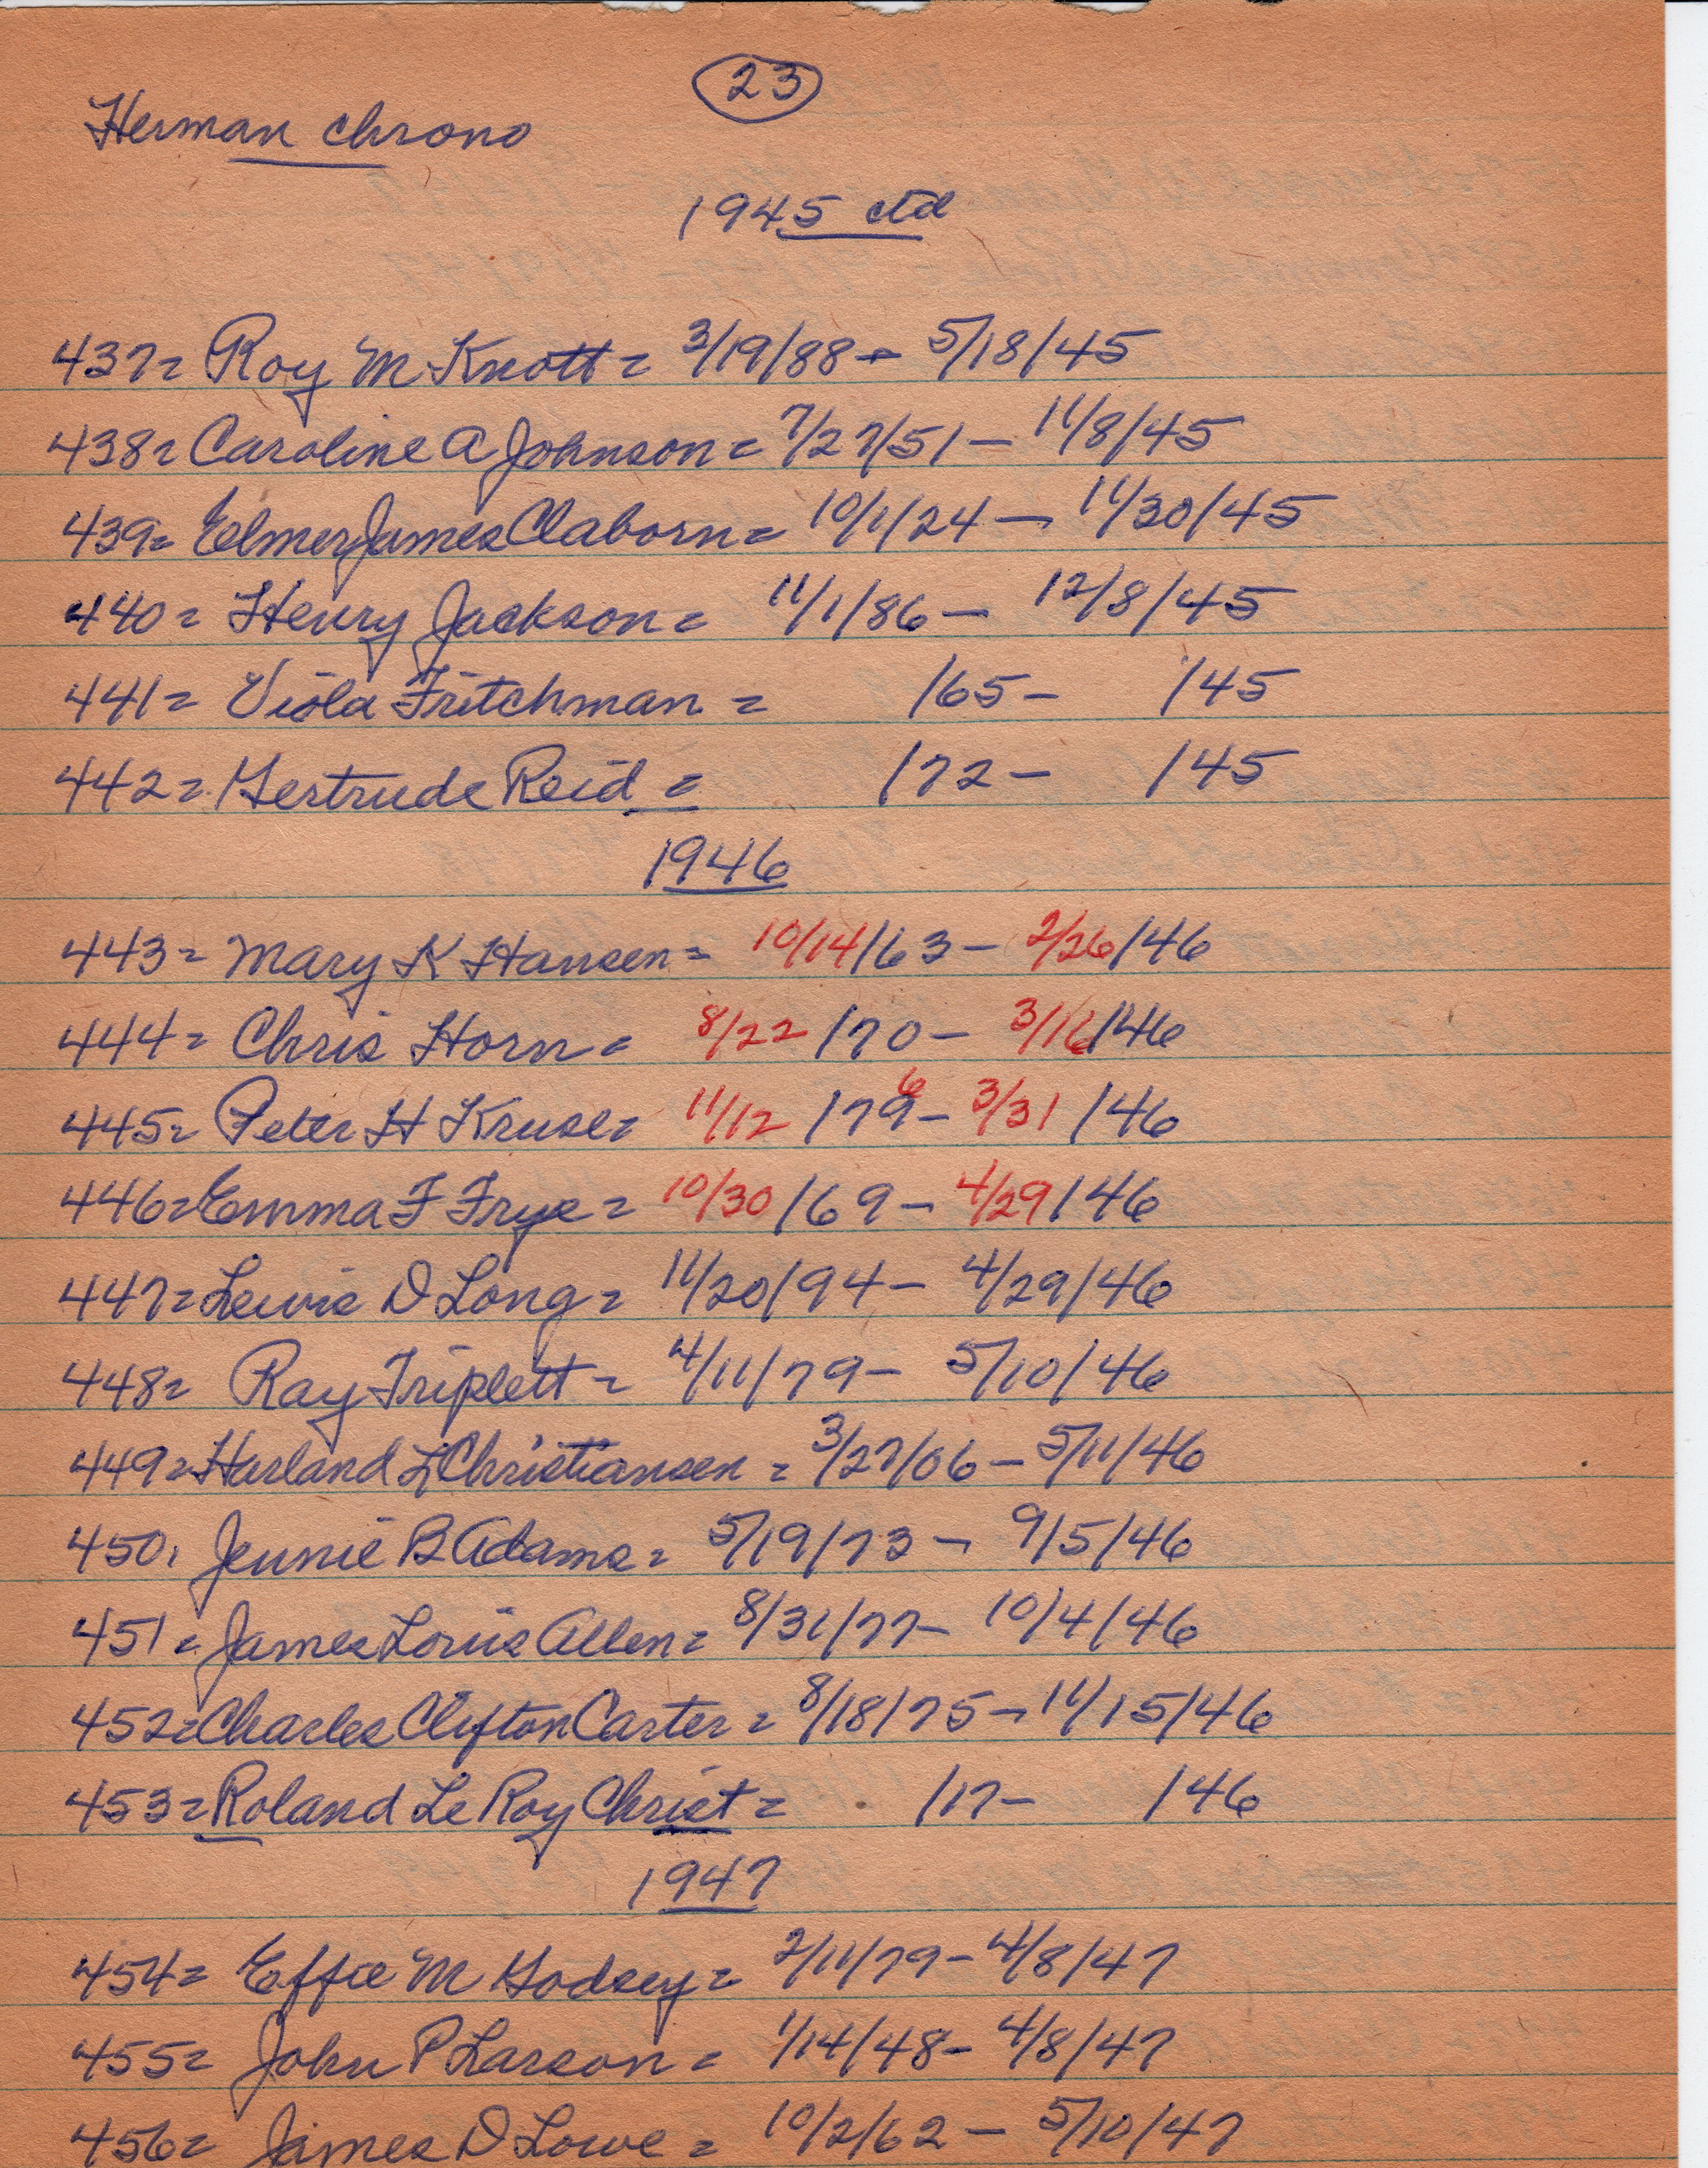 23
Herman chrono
1945 ctd
437= Roy M Knott= 3/19/88 - 5/18/45
438= Caroline A Johnson= 7/27/51 - 11/8/45
439= Elmer James Claborn= 10/1/24 - 11/30/45
440= Henry Jackson= 11/1/86 - 12/8/45
441= Viola Fritchman = /65 - /45
442= Gertrude Reid = /72 - /45
1946
443= Mary K Hansen= 10/14/63 - 2/26/46
444= Chris Horn= 8/22/70 - 3/16/46
445= Peter H Kruse= 11/12/79 6 - 3/31/46
446= Emma F Frye= 10/30/69 - 4/29/46
447= Lewis D Long= 11/20/94 - 4/29/46
448= Ray Triplett= 4/11/79 - 5/10/46
449= Harland L Christiansen = 3/27/06 - 5/11/46
450, Jennie B Adams= 5/19/73 - 9/5/46
451= James Louis Allen= 8/31/77 - 10/4/46
452= Charles Clifton Carter= 8/18/75 - 11/15/46
453= Roland Le Roy Christ= /17 - /46
1947
454= Effie M Godsey= 2/11/79 - 4/8/47
455= John P Larson= 1/14/48 - 4/8/47
456= James D Lowe= 10/2/62 - 5/10/47